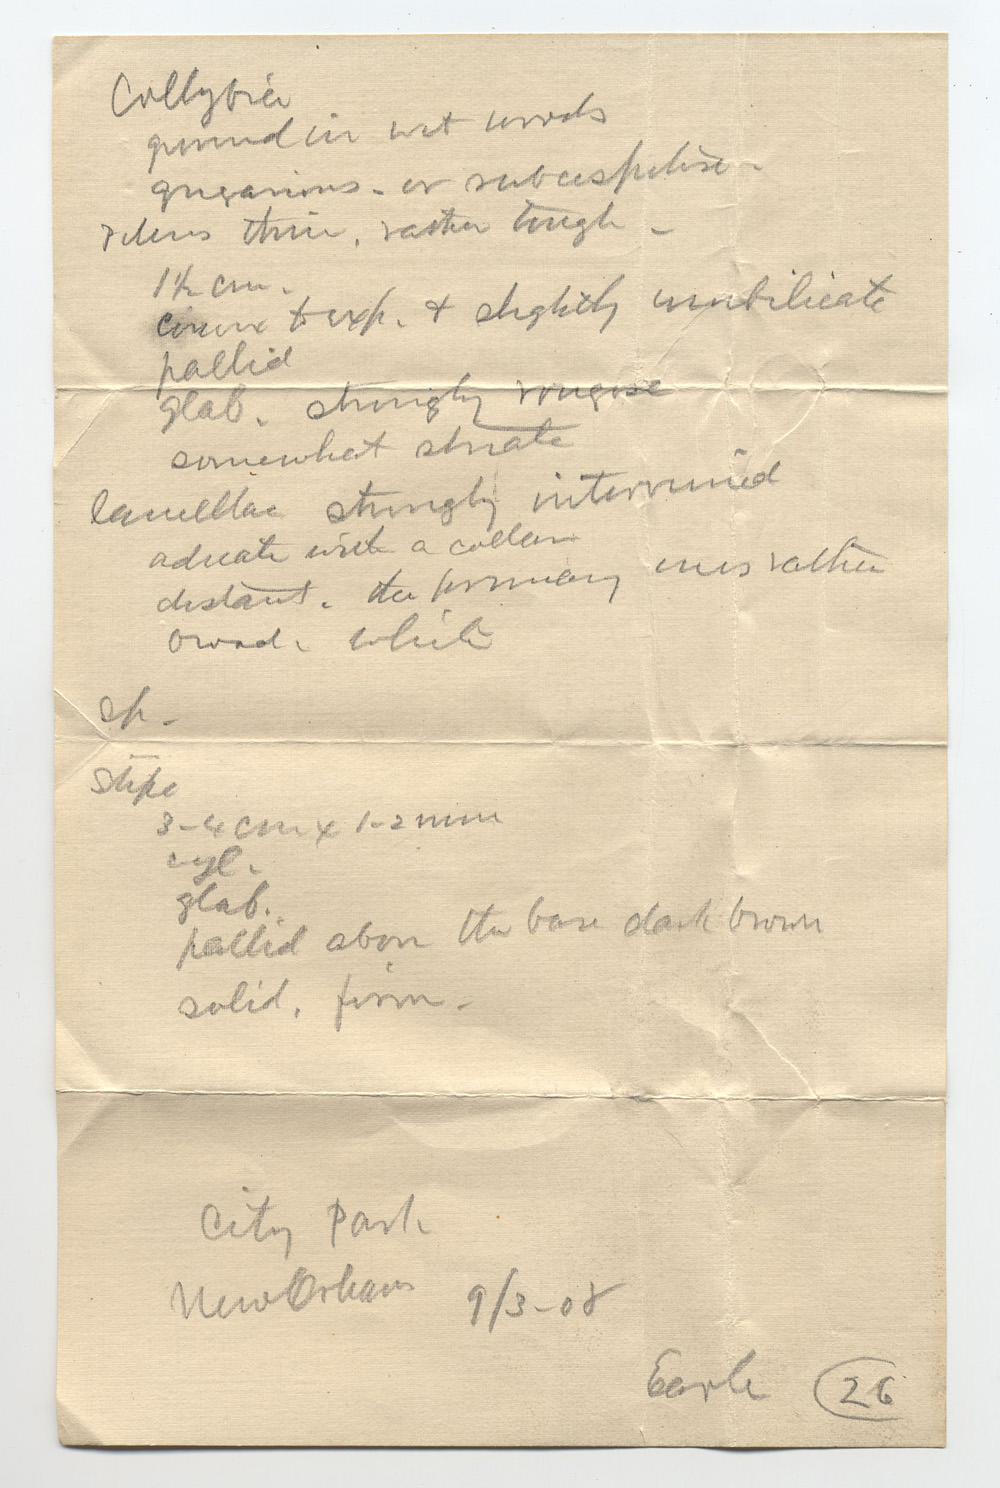 Collybia
ground in wet woods
gregarious - or subcespitose -
Pileus thin, rather tough -
1½ cm.
convex to exp. & slightly umbilicate
pallid
glab. strongly rougose
somewhat striate
lamellae strongly interveined
adnate with a collar
distant. the primary ones rather
broad. white
Sp -
Stipe
3-4 cm x 1-2 mm
cyl.
glab.
pallid above the base dark brown
solid, firm -
City Park
New Orleans 9/3-08
Earle 26